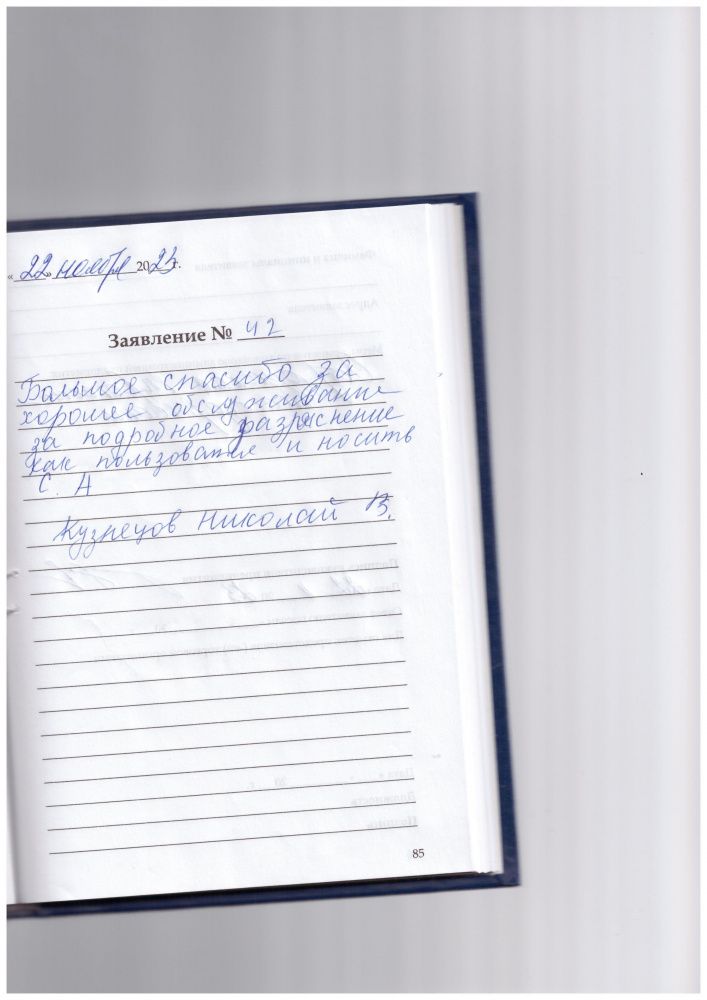 «22» ноября 2023г.
Заявление № 42
Большое спасибо за
хорошее обслуживание
за подробное разяснение
как пользоватся и носить
С. А
Кузнецов Николай В.
85